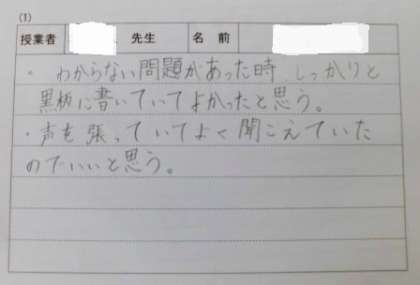 (1)
授業者 先生 名前
・わからない問題があった時 しっかりと
黒板に書いていてよかったと思う。
・声も張っていてよく聞こえていた
のでいいと思う。